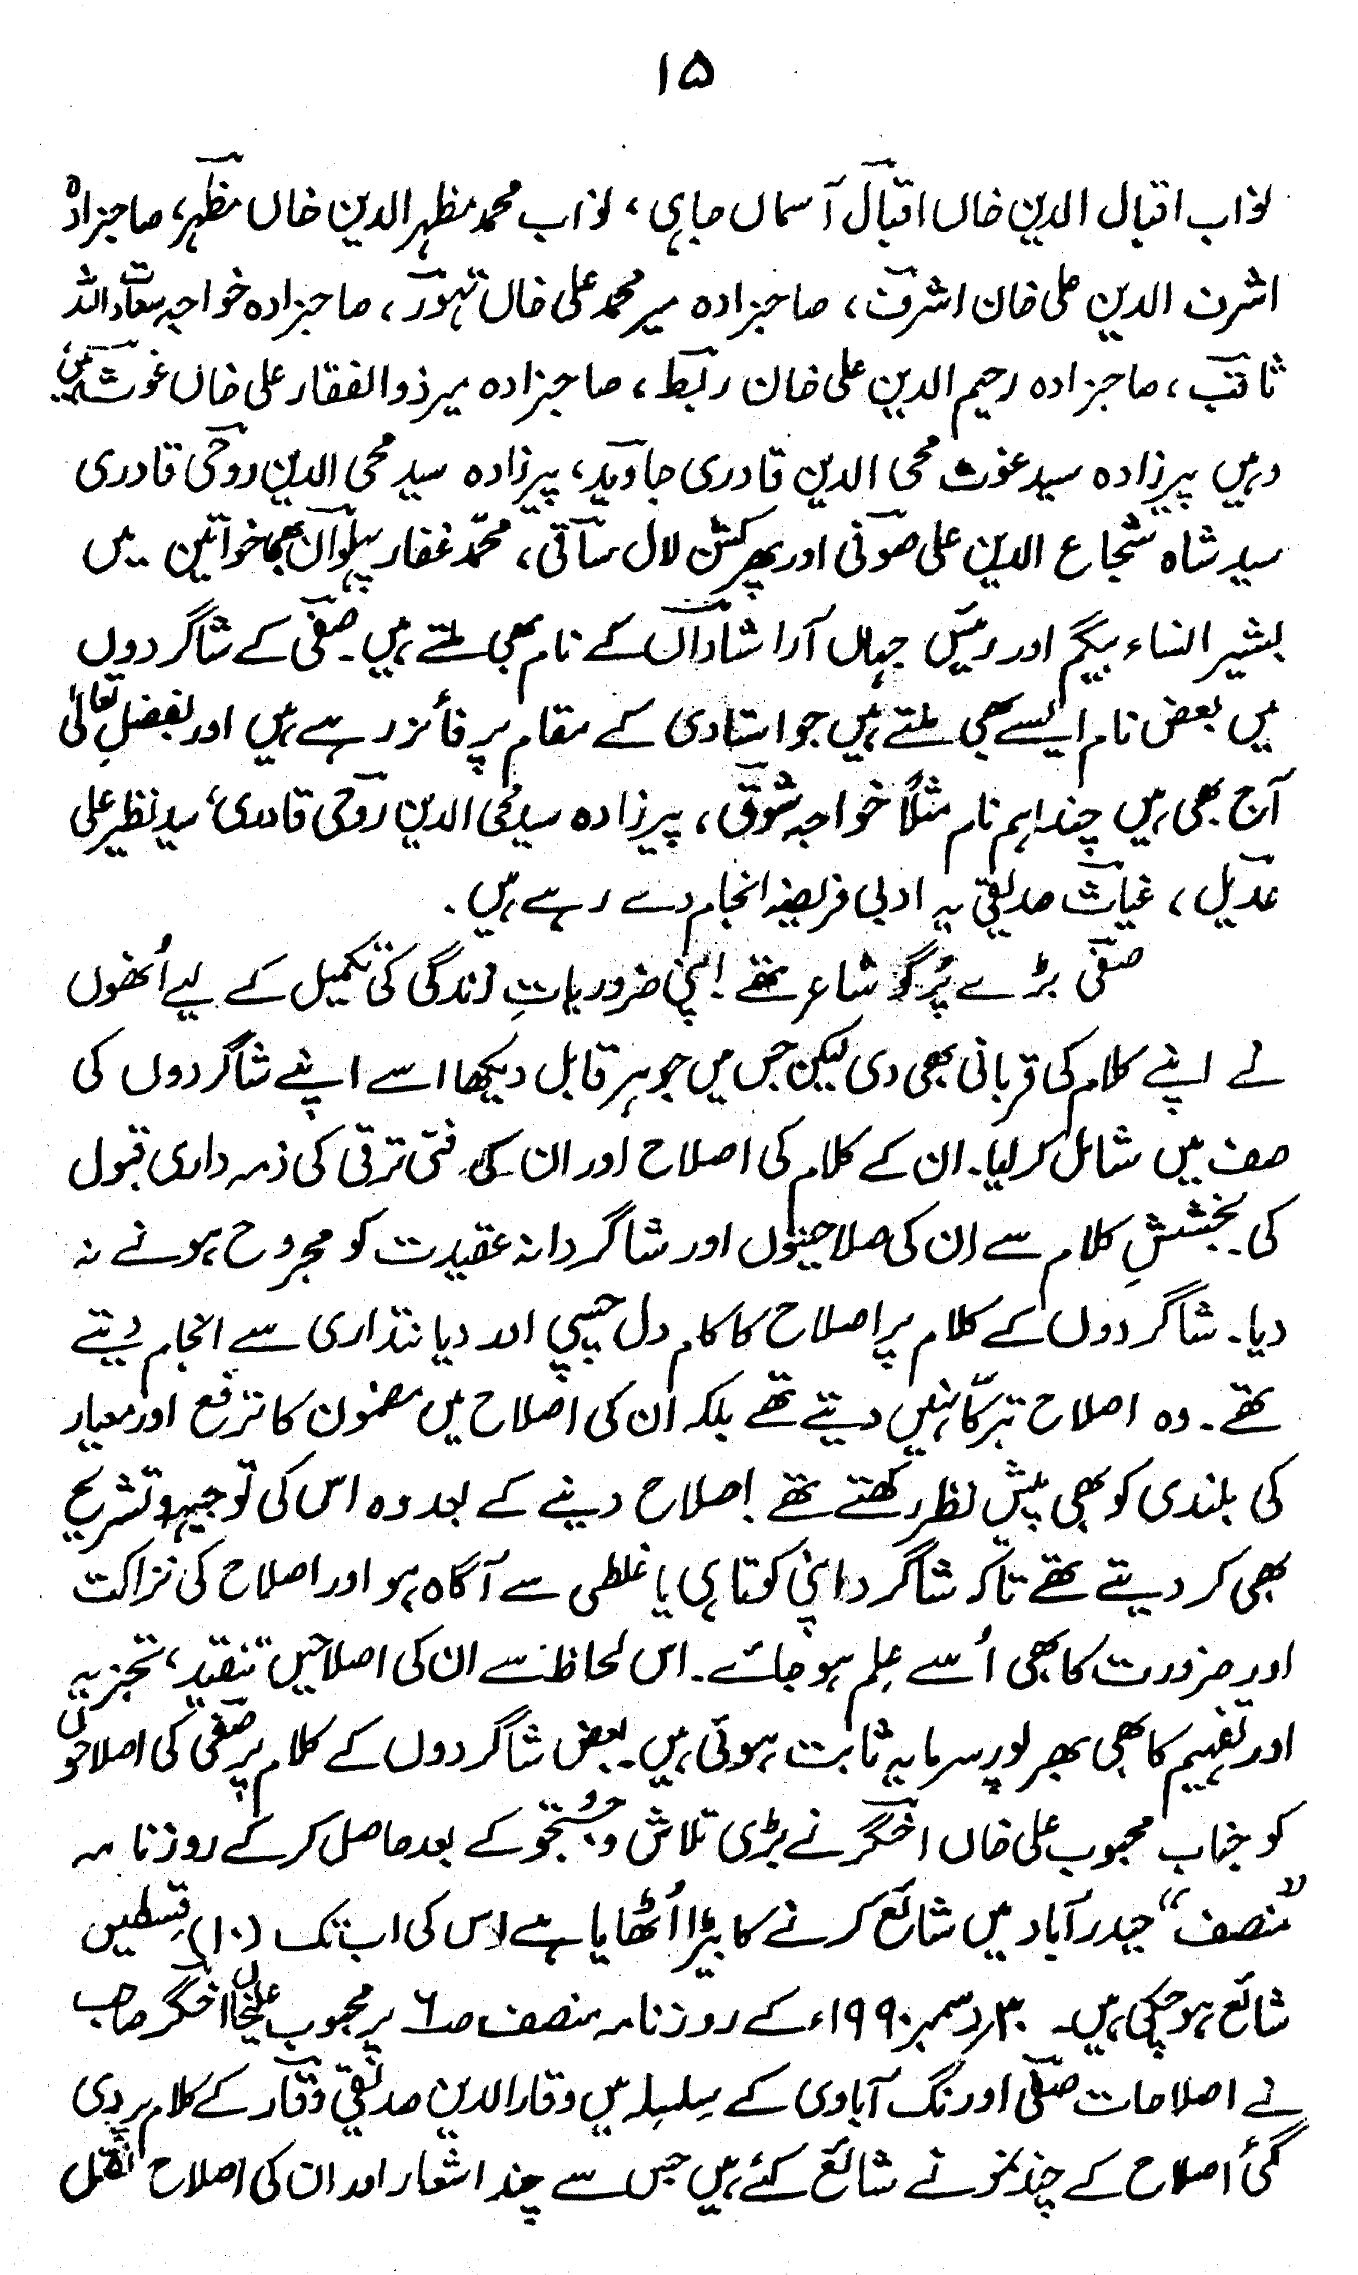 ۱۵
نواب اقبال الدین خاں اقبالؔ آسماں جاہی، نواب محمد مظہر الدین خاں مظہرؔ، صاحبزادہ
اشرف الدین علی خان اشرفؔ، صاحبزادہ میر محمد علی خاں تہورؔ، صاحبزادہ خواجہ سعادت اللہ
ثاقبؔ، صاحبزادہ رحیم الدین علی خان ربطؔ، صاحبزادہ میر ذوالفقار علی خاں غوثؔ ہیں
وہیں پیرزادہ سید غوث محی الدین قادری جاویدؔ، پیرزادہ سید محی الدین روحیؔ قادری
سید شاہ شجاع الدین علی صوفیؔ اور پھر کشن لال ساقیؔ، محمّد غفار پہلوانؔ بھی خواتین میں
بشیر النساء بیگم اور رئیس جہاں آرا شاداںؔ کے نام بھی ملتے ہیں۔ صفیؔ کے شاگردوں
میں بعض نام ایسے بھی ملتے ہیں جو استادی کے مقام پر فائز رہے ہیں اور بفضلِ تعالیٰ
آج بھی ہیں چند اہم نام مثلاً خواجہ شوقؔ، پیرزادہ سید محی الدین روحیؔ قادری، سید نظیر علی
عدیلؔ، غیاثؔ صدیقی یہ ادبی فریضہ انجام دے رہے ہیں۔
صفیؔ بڑے پُرگو شاعر تھے۔ اپنی ضروریاتِ زندگی کی تکمیل کے لیے اُنھوں
نے اپنے کلام کی قربانی بھی دی لیکن جس میں جوہر قابل دیکھا اسے اپنے شاگردوں کی
صف میں شامل کر لیا۔ ان کے کلام کی اصلاح اور ان کی فنّی ترقی کی ذمہ داری قبول
کی۔ بخششِ کلام سے ان کی صلاحیتوں اور شاگردانہ عقیدت کو مجروح ہونے نہ
دیا۔ شاگردوں کے کلام پر اصلاح کا کام دل چسپی اور دیانتداری سے انجام دیتے
تھے۔ وہ اصلاح تبرکاً نہیں دیتے تھے بلکہ ان کی اصلاح میں مضمون کا ترفع اور معیار
کی بلندی کو بھی پیش نظر رکھتے تھے۔ اصلاح دینے کے بعد وہ اس کی توجیہہ و تشریح
بھی کر دیتے تھے تاکہ شاگرد اپنی کوتاہی یا غلطی سے آگاہ ہو اور اصلاح کی نزاکت
اور ضرورت کا بھی اُسے عِلم ہو جائے۔ اس لحاظ سے ان کی اصلاحیں تنقید، تجزیہ
اور تفہیم کا بھی بھرپور سرمایہ ثابت ہوتی ہیں۔ بعض شاگردوں کے کلام پر صفیؔ کی اصلاحوں
کو جناب محبوب علی خاں اخگرؔ نے بڑی تلاش و جُستجو کے بعد حاصل کر کے روزنامہ
”منصف“ حیدرآباد میں شائع کرنے کا بیڑا اُٹھایا ہے اس کی اب تک (۱۰) قِسطیں
شائع ہو چکی ہیں۔ ۳۰؍ دسمبر ۱۹۹۰ء کے روزنامہ منصف صـ۶ پر محبوب علیخاں اخگرؔ صاحب
نے اصلاحات صفیؔ اورنگ آبادی کے سِلسِلہ میں وقار الدین صدیقی وقارؔ کے کلام پر دی
گئی اصلاح کے چند نمونے شائع کئے ہیں جس سے چند اشعار اور ان کی اصلاح نقل